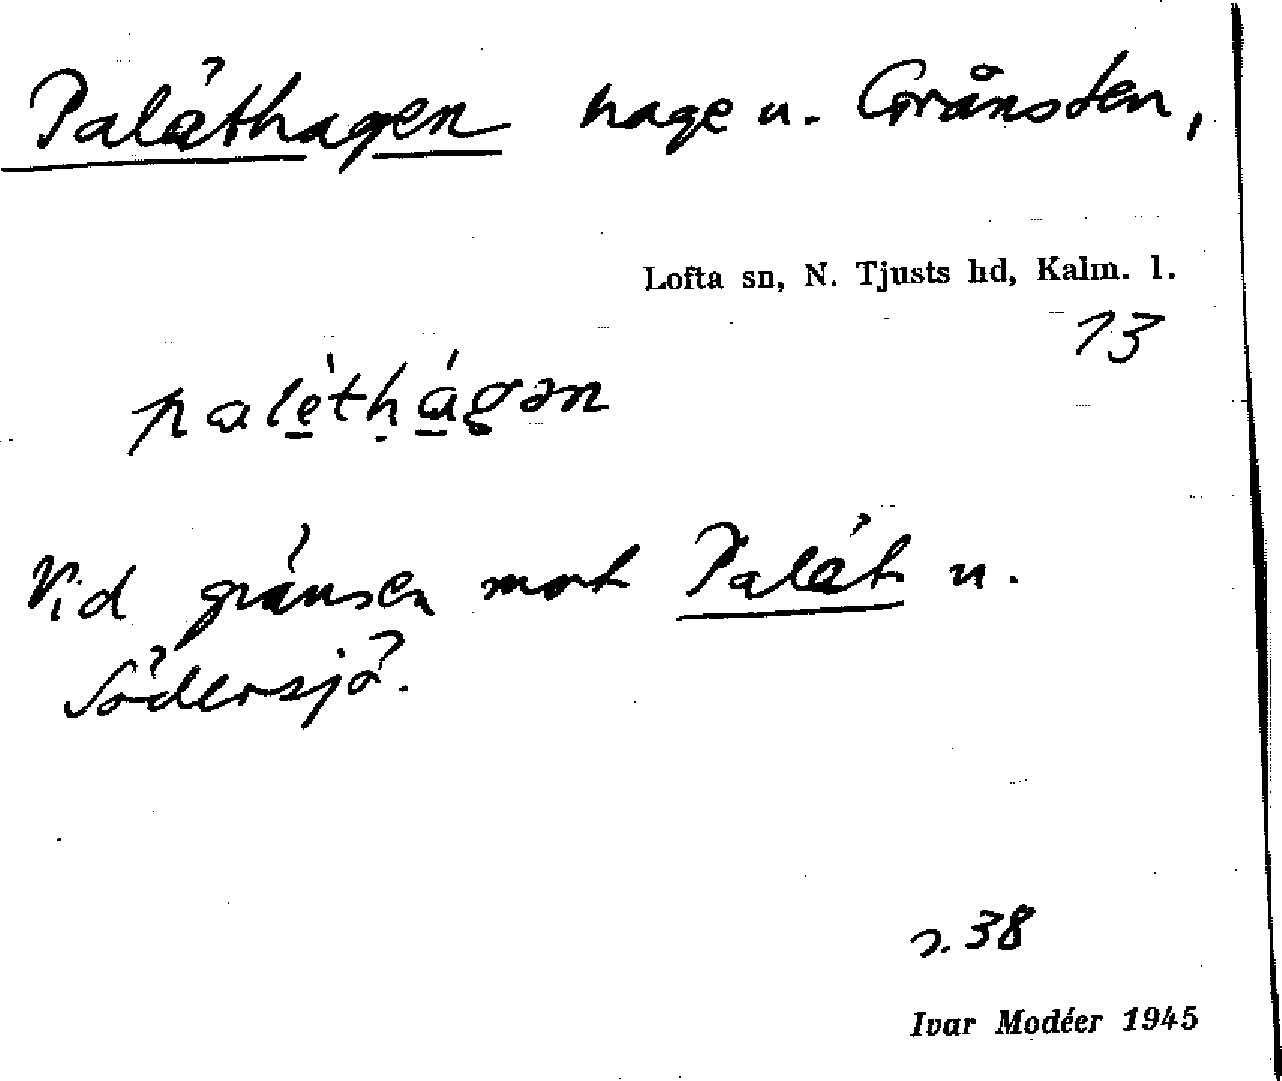 Palåthagen hage u. Grånsten,
Lofta sn, N. Tjusts hd, Kalm. l.
13
paléthágən
Vid gränsen mot Palåt u.
Södersjö.
s. 38
Ivar Modéer 1945